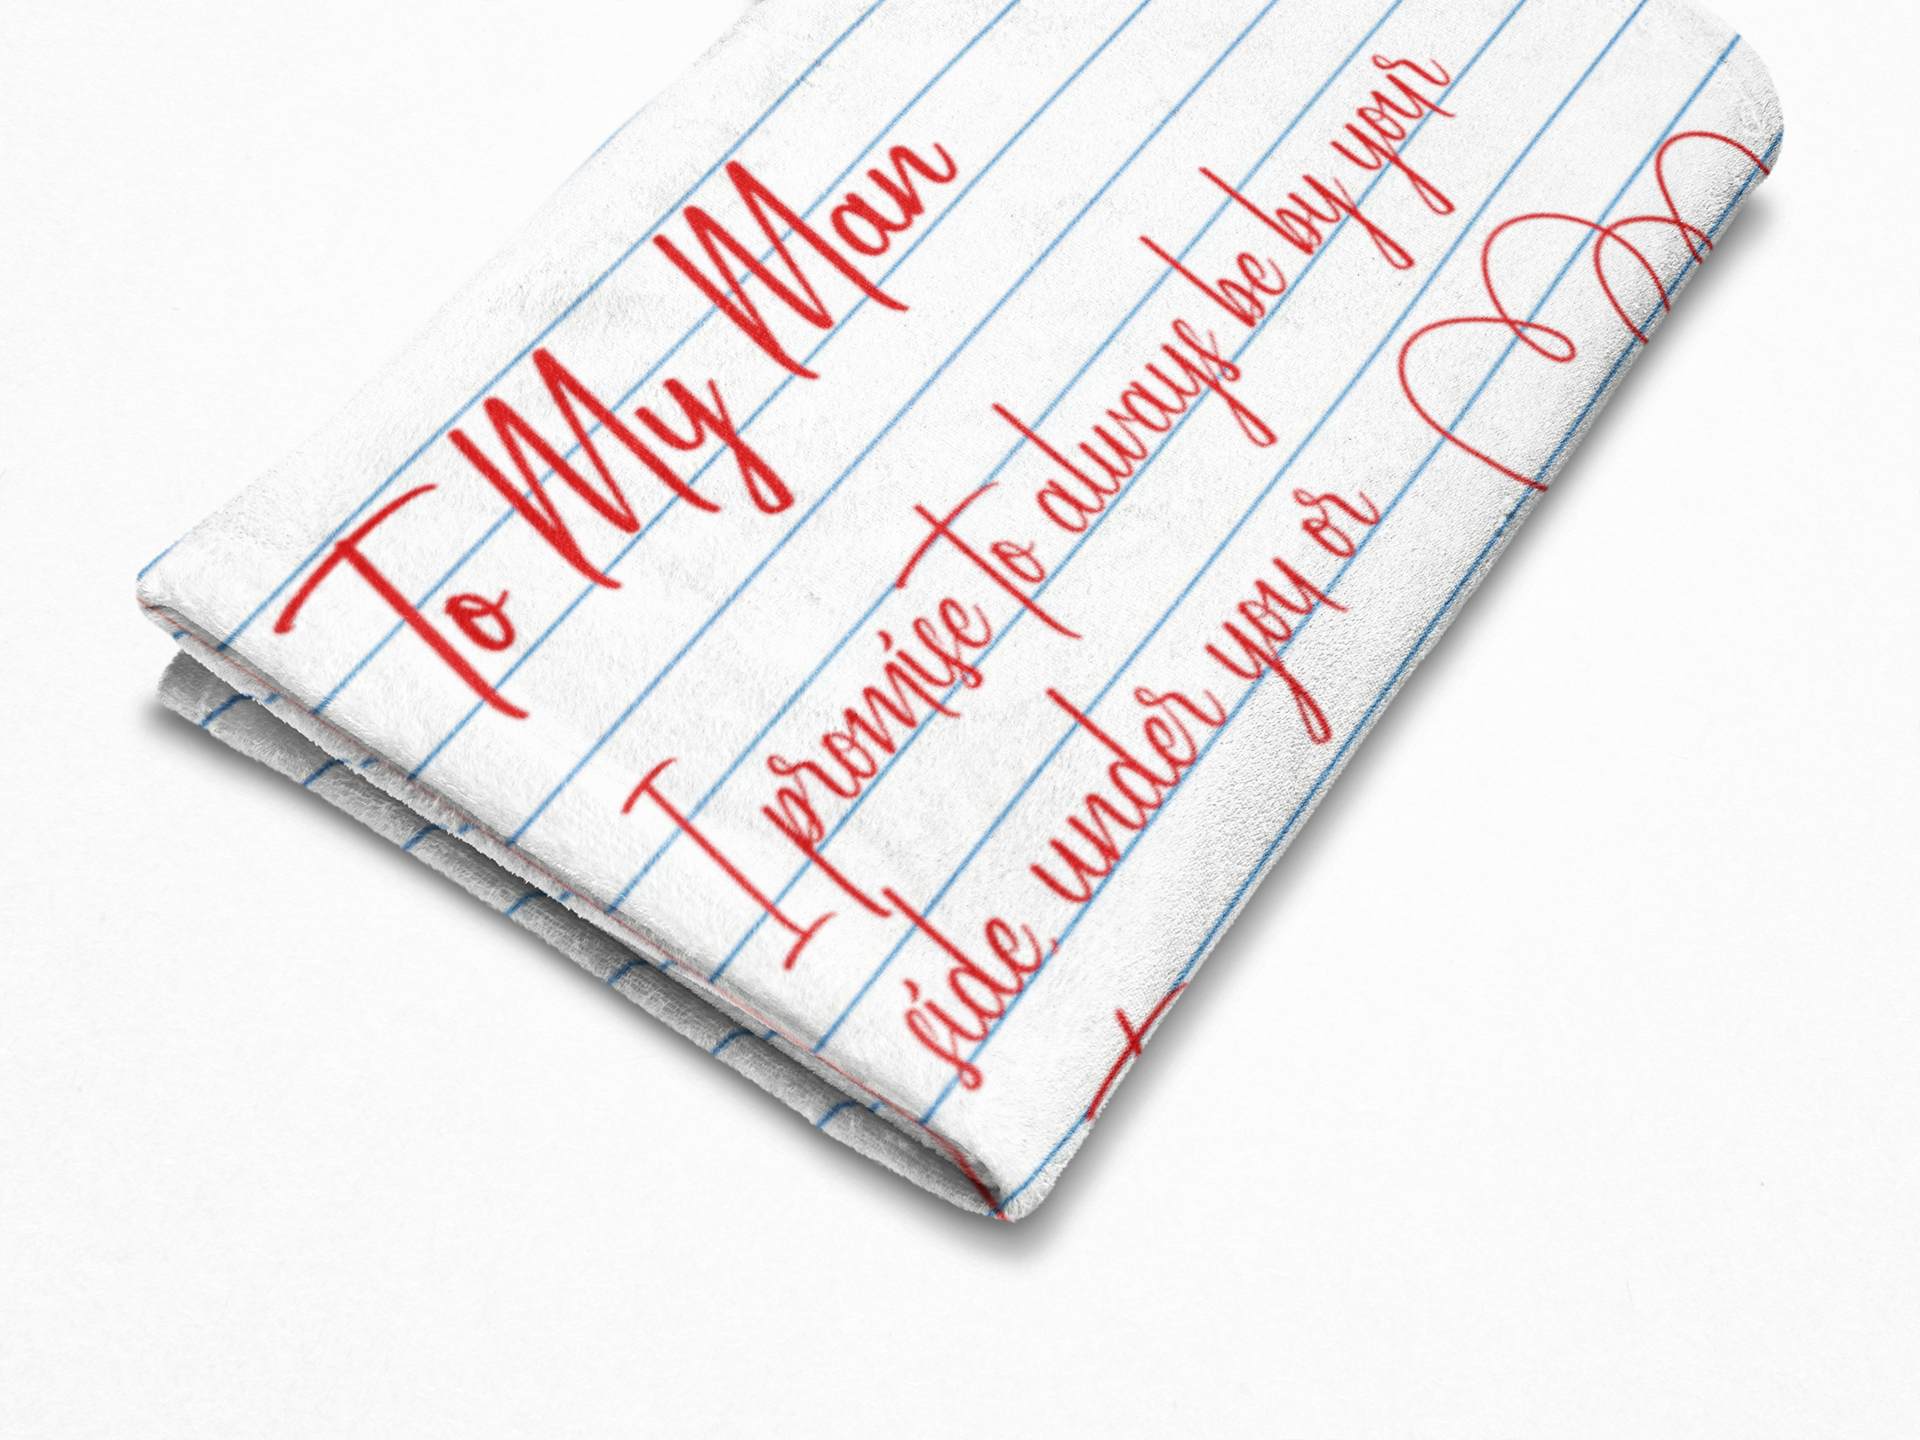 To My Man
I promise To always be by your
side, under you or